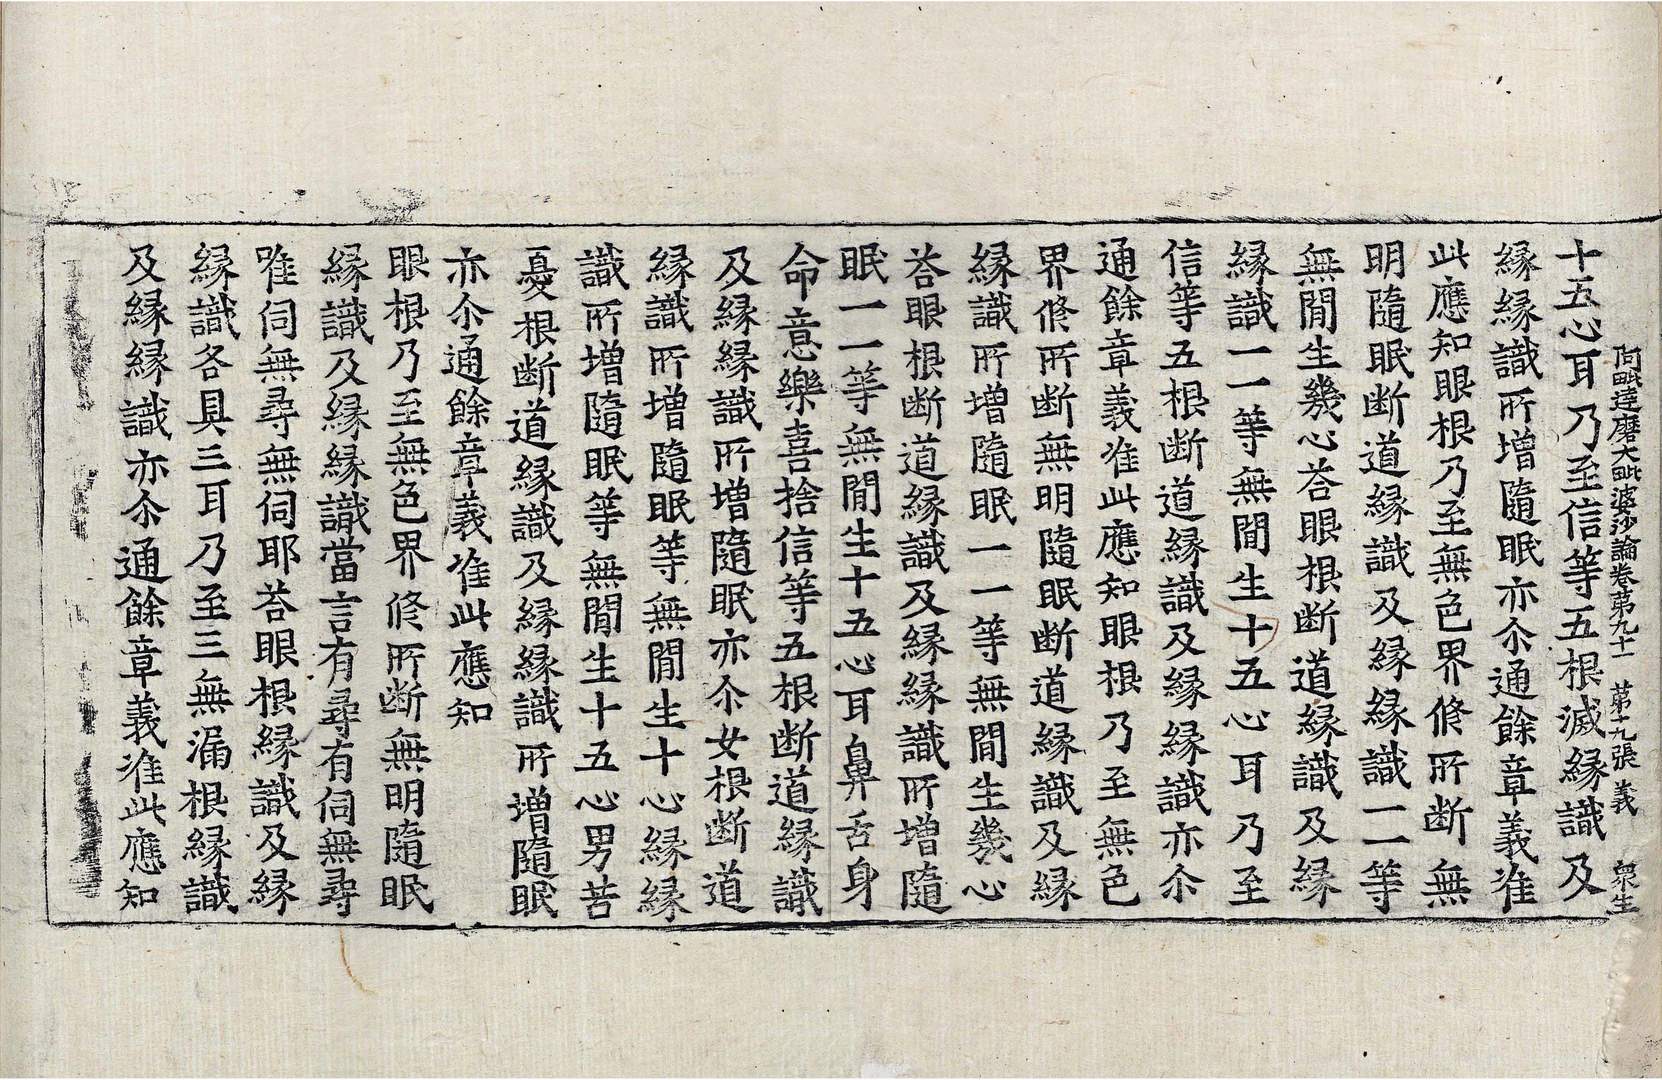 阿毗達磨大毗婆沙論卷第九十一　第十九張　義　衆生
十五心耳乃至信等五根滅縁識及
縁縁識所增隨眠亦尒通餘章義准
此應知眼根乃至無色界修所断無
明隨眠断道縁識及縁縁識一一等
無閒生幾心荅眼根断道縁識及縁
縁識一一等無閒生十五心耳乃至
信等五根断道縁識及縁縁識亦尒
通餘章義准此應知眼根乃至無色
界修所断無明隨眠断道縁識及縁
縁識所增隨眠一一等無閒生幾心
荅眼根断道縁識及縁縁識所增隨
眠一一等無閒生十五心耳鼻舌身
命意樂喜捨信等五根断道縁識
及縁縁識所增隨眠亦尒女根断道
縁識所增隨眠等無閒生十心縁縁
識所增隨眠等無閒生十五心男苦
憂根断道縁識及縁縁識所增隨眠
亦尒通餘章義准此應知
眼根乃至無色界修所断無明隨眠
縁識及縁縁識當言有尋有伺無尋
唯伺無尋無伺耶荅眼根縁識及縁
縁識各具三耳乃至三無漏根縁識
及縁縁識亦尒通餘章義准此應知